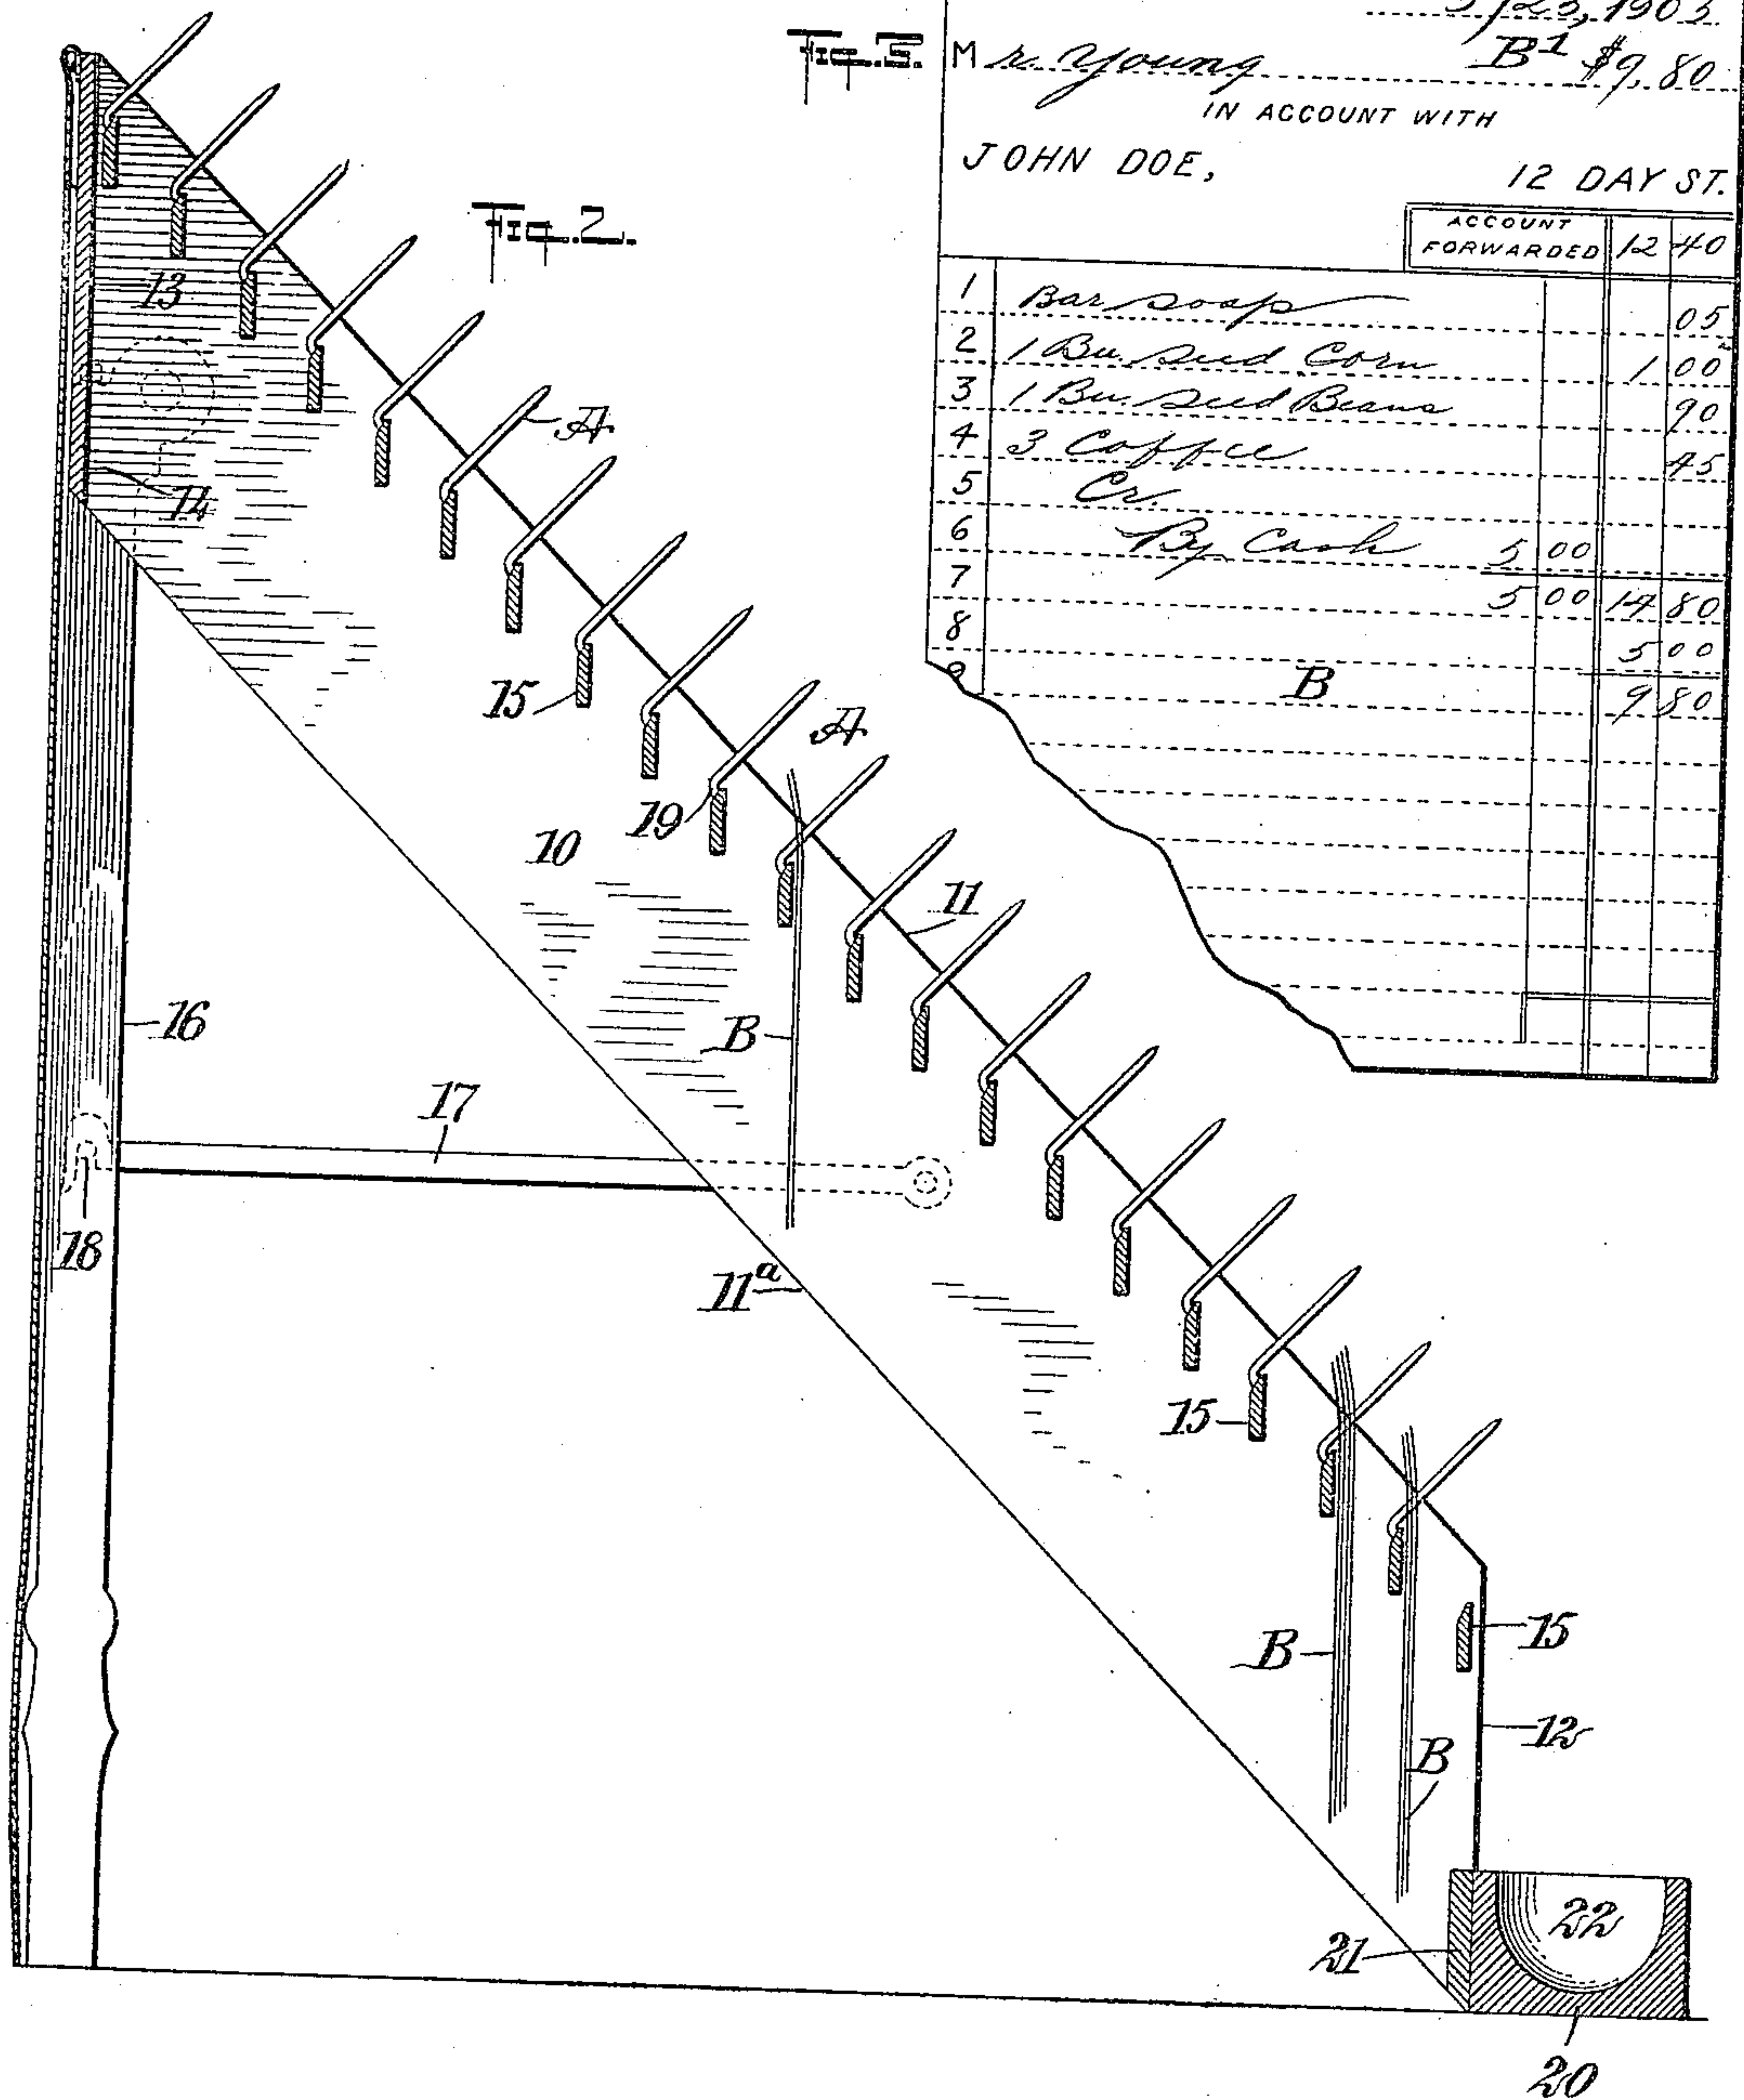 5/23, 1903
Fig. 3.
Mr. Young B¹ $9.80
IN ACCOUNT WITH
JOHN DOE, 12 DAY ST.
ACCOUNT FORWARDED 12 40
1 Bar soap 05
2 1 Bu. Seed Corn 1 00
3 1 Bu. Seed Beans 90
4 3 Coffee 45
5 Cr.
6 By Cash 5 00
7 5 00 14 80
8 5 00
9 9 80
B
Fig. 2.
13
A
14
15
A
19
10
11
B
16
17
18
11ª
15
15
B
12
B
22
21
20